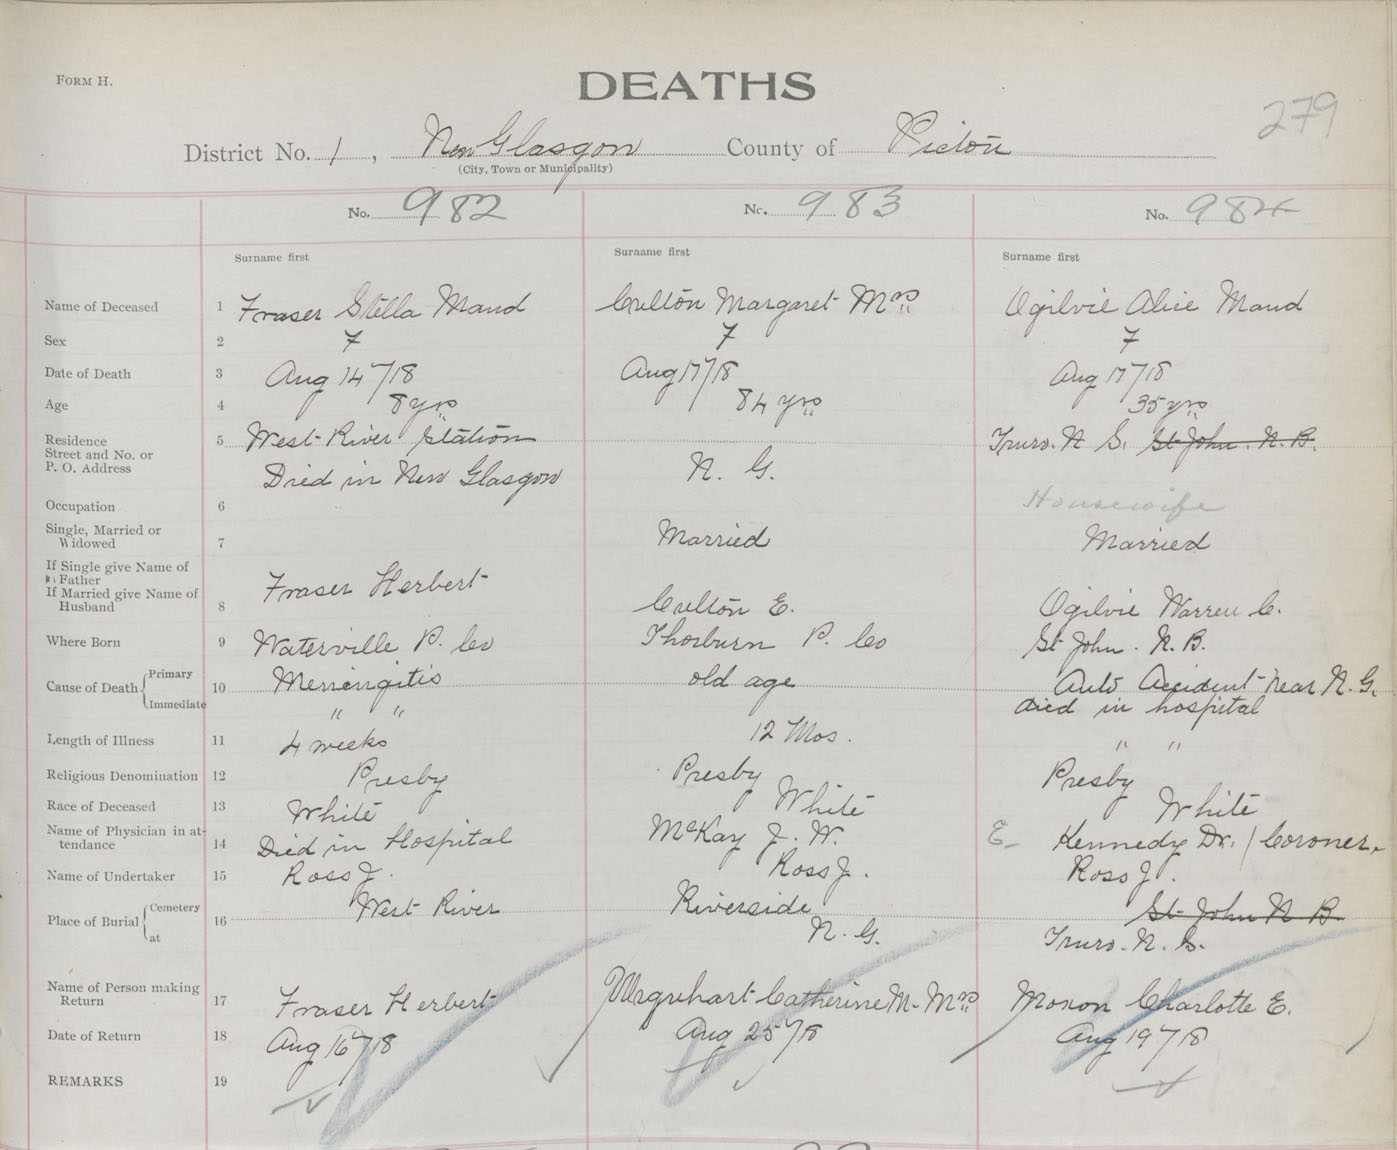 FORM H.
DEATHS
279
District No. 1, New Glasgow County of Pictou
(City, Town or Municipality)
No. 982 No. 983 No. 984
Surname first Surname first Surname first
Name of Deceased 1 Fraser Stella Maud Culton Margaret Mrs Ogilvie Alice Maud
Sex 2 F F F
Date of Death 3 Aug 14"/18 Aug 17"/18 Aug 17"/18
Age 4 8 yrs 84 yrs 35 yrs
Residence 5 West River Station Truro. N. S. St John. N. B.
Street and No. or
P. O. Address Died in New Glasgow N. G.
Occupation 6 Housewife
Single, Married or
Widowed 7 Married Married
If Single give Name of
Father
If Married give Name of
Husband 8 Fraser Herbert Culton E. Ogilvie Warren C.
Where Born 9 Waterville P. Co Thorburn P. Co St John. N. B.
Cause of Death Primary 10 Meningitis old age Auto Accident near N. G.
Immediate " " died in hospital
Length of Illness 11 4 weeks 12 Mos. " "
Religious Denomination 12 Presby Presby Presby
Race of Deceased 13 White White White
Name of Physician in at-
tendance 14 Died in Hospital McKay J. W. E Kennedy Dr. / Coroner.
Name of Undertaker 15 Ross J. Ross J. Ross J.
Place of Burial Cemetery 16 West River Riverside St John N B
at N. G. Truro. N. S.
Name of Person making
Return 17 Fraser Herbert Urquhart Catherine M. Mrs Moxon Charlotte E.
Date of Return 18 Aug 16"/18 Aug 25"/18 Aug 19"/18
REMARKS 19